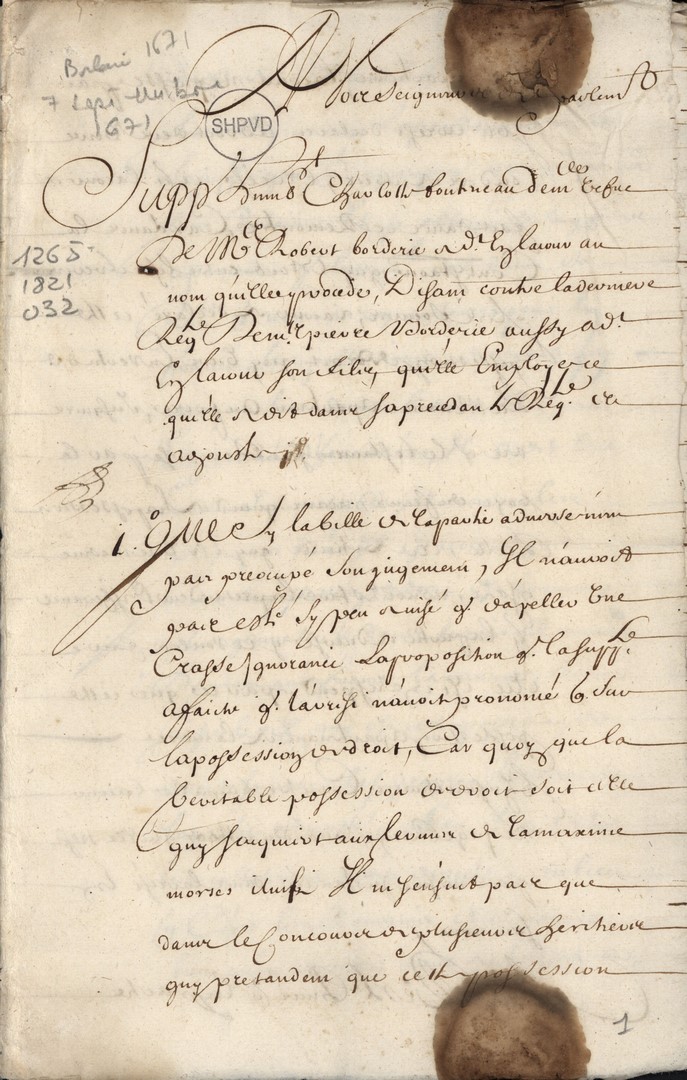 Borderie 1671
7 sept
1671
SHPVD
A Nosseigneurs de Parlem.t
Supp.t humb.t Charlotte boutineau dem.lle vefue
De M.e Robert borderie ad.t En lacour au
nom quelle procede, Disant contre laderniere
Req.te De m.e pierre borderie aussy ad.t
En lacour son filz, quelle Employe ce
quelle a dit dans sa precedan.te Req.te et
adjouste
1265
1821
032
1.o Que sy la bille de la partie adverse n'eut
pas preocupé son jugement, Il n'auroit
pas esté sy peu avisé q. d'apeller Une
Crasse ignorance La proposition q. la supp.te
a faicte q. l'arrest n'avoit prononcé q. sur
la possession de droit, Car quoy que la
veritable possession de droit soit celle
quy s'acquiert aux termes de la maxime
mort saisit le vif Il ne s'ensuit pas que
dans le Concours de plusieurs heritiers
quy pretendent que ceste possession
1